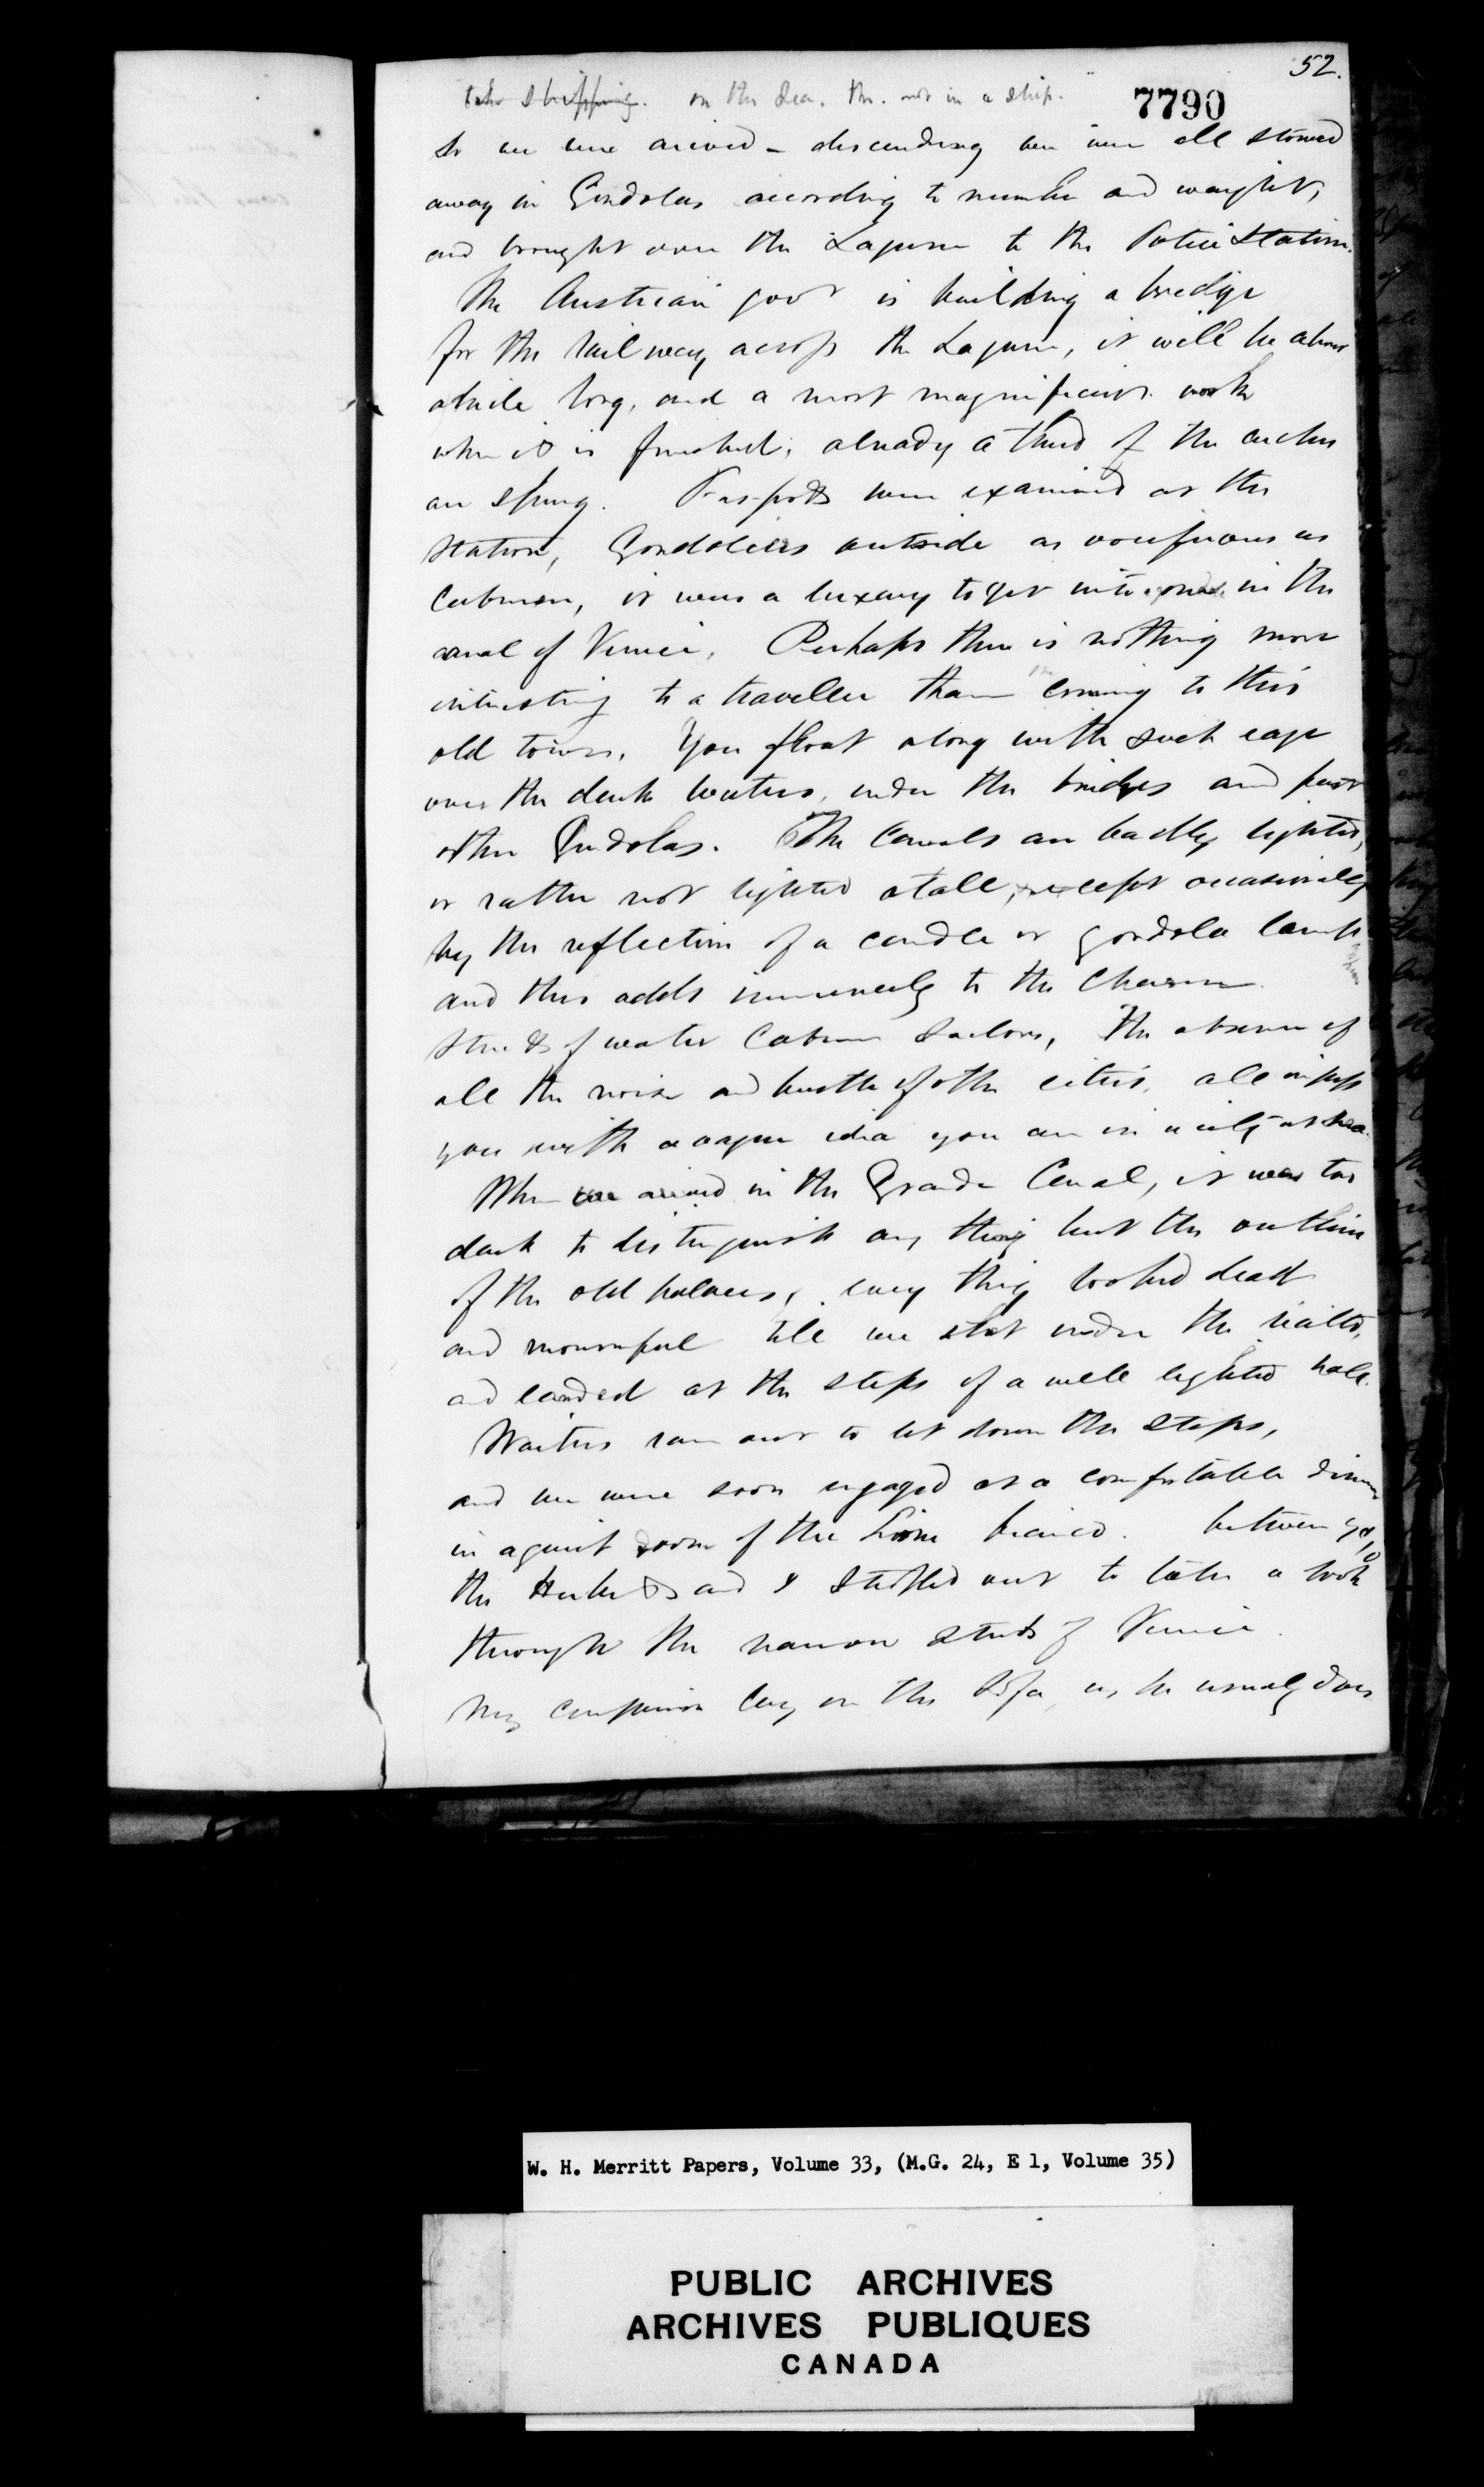 52.
take shipping. on the sea. tho. not in a ship.
7790
So we were arived - descending we were all stowed
away in Gondolas according to number and waught,
and brought over the Lagune to the Police Station.
The Austrian govt is building a bredge
for the railway across the Lagune, it will be about
a mile long, and a most magnificent work
when it is finished, already a third of the arches
are sprung. Passports were examined at the
Station, Gondoliers outside as vociferous as
Cabmen, it was a luxury to get into in the
canal of Venice. Perhaps there is nothing more
interesting to a traveller than coming to this
old town. You float along with such ease
over the dark waters, under the bridges and past
other Gondolas. The Canals are badly lighted,
or rather not lighted atall, except occasionally
by the reflection of a candle or gondola lamp
and this adds immensely to the Charm.
Streets of water Cabmen Sailors, The absence of
all the noise and bustle of other cities, all impress
you with a vague idea you are in a city at sea.
When we arived in the Grande Canal, it was too
dark to distinguish any thing but the outline
of the old palaces, every thing looked dead
and mournful till we shot under the rialto,
and landed at the steps of a well lighted hall.
Waiters ran out to let down the steps,
and we were soon engaged at a comfortable dinner
in a quiet room of the Lione bianco. between 9 & 10
the and I strolled out to take a look
through the narrow streets of Venice.
My companion lay on the Sofa, as he usualy does
W. H. Merritt Papers, Volume 33, (M.G. 24, E 1, Volume 35)
PUBLIC ARCHIVES
ARCHIVES PUBLIQUES
CANADA